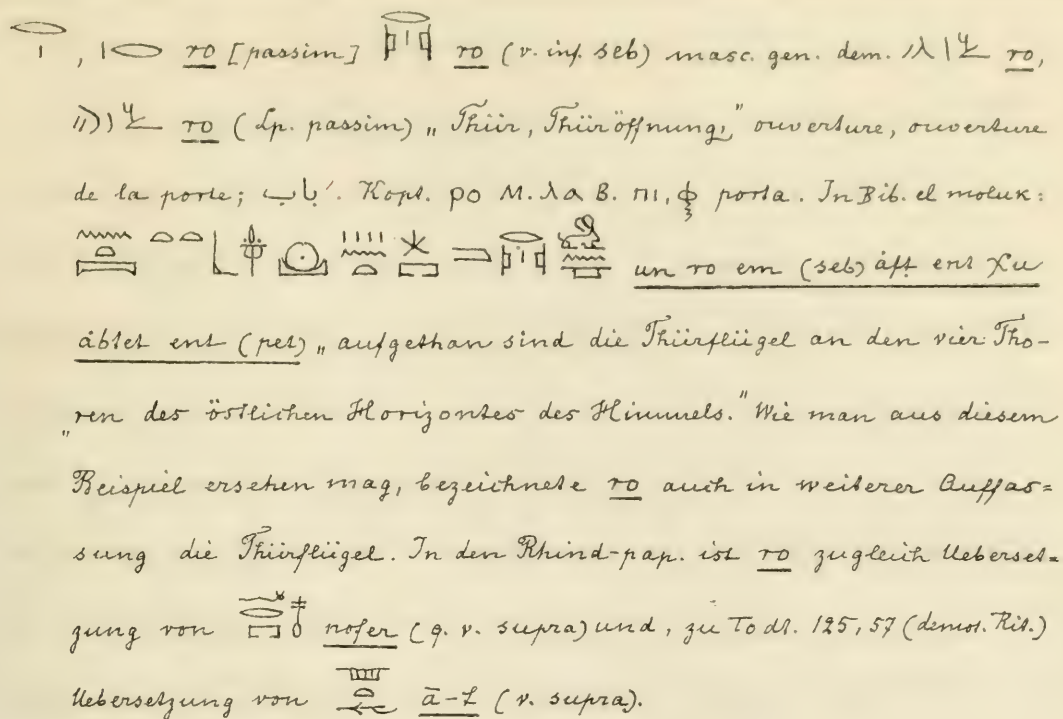 , ro [passim] ro (v. inf. seb) masc. gen. dem. ro,
ro (Lp. passim) „Thür, Thüröffnung," ouverture, ouverture
de la porte; باب. Kopt. ⲣⲟ M. ⲗⲁ B. ⲡⲓ, ⲫ porta. In Bib. el moluk:
un ro em (seb) åft ent χu
åbtet ent (pet) „aufgethan sind die Thürflügel an den vier Tho-
„ren des östlichen Horizontes des Himmels." Wie man aus diesem
Beispiel ersehen mag, bezeichnete ro auch in weiterer Auffas=
sung die Thürflügel. In den Rhind-pap. ist ro zugleich Ueberset=
zung von nofer (q. v. supra) und, zu Todt. 125, 57 (demot. Rit.)
Uebersetzung von ā-t (v. supra).